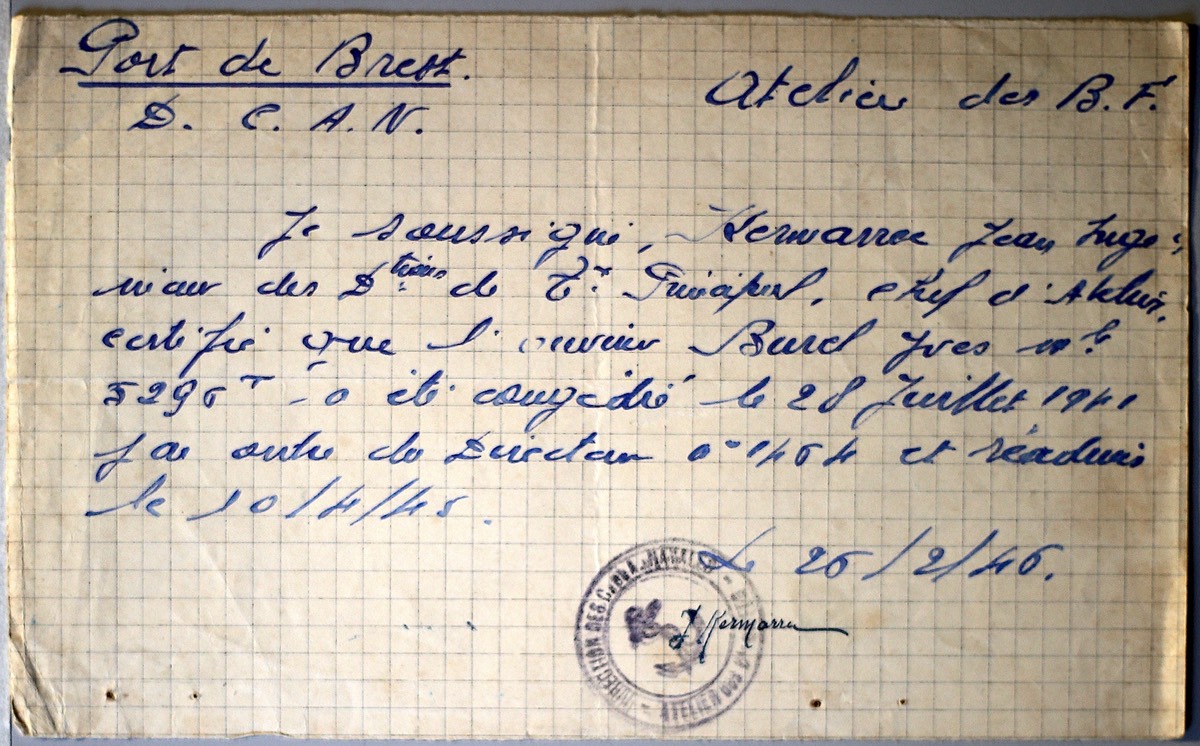 Port de Brest.
Atelier des B.F.
D. C. A. N.
Je soussigné, Kermarrec Jean Ingé-
nieur des D^tions de T^x Principal, chef d'Atelier,
certifie que l'ouvrier Burel Yves m^le
a été congédié le 28 Juillet 1941
ordre du Directeur n° 1464 et réadmis
le 10/4/45.
Le 26/2/46.
J. Kermarrec
DIRECTION DES C. & A. NAVALES
ATELIER DES